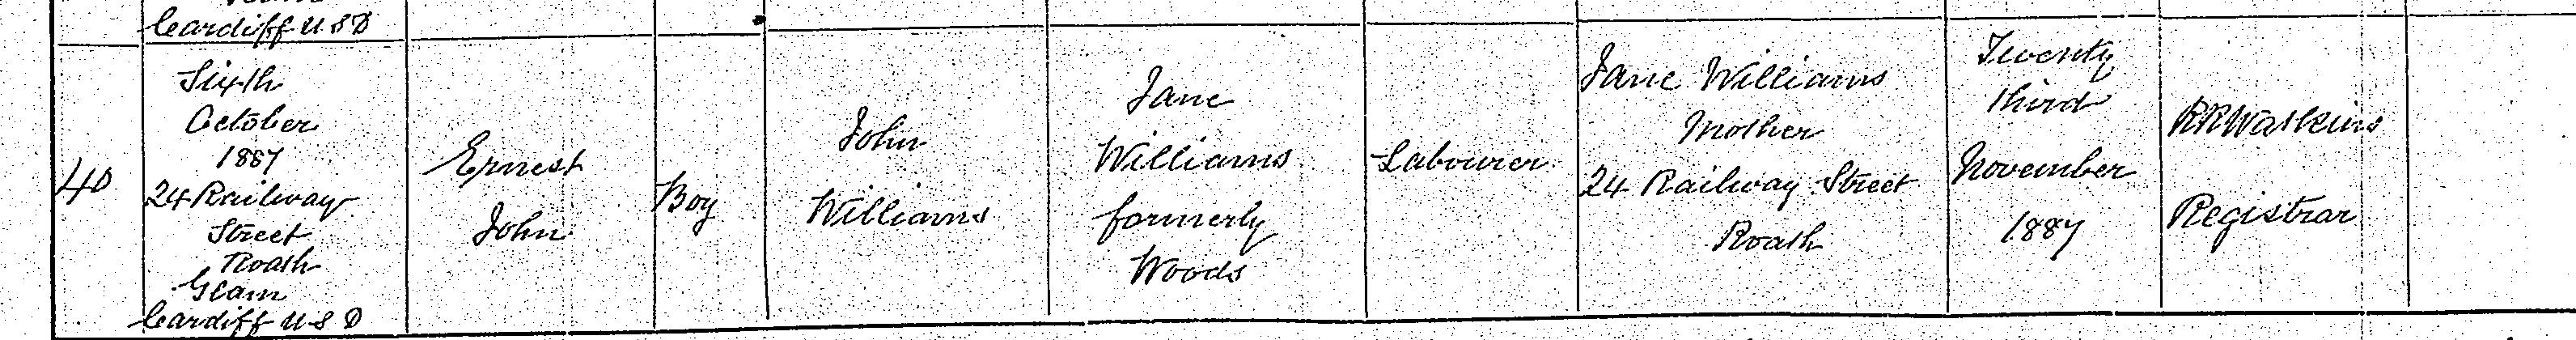 Cardiff U S D
40
Sixth
October
1887
24 Railway
Street
Roath
Glam
Cardiff U S D
Ernest
John
Boy
John
Williams
Jane
Williams
formerly
Woods
Labourer
Jane Williams
Mother
24 Railway Street
Roath
Twenty
third
November
1887
Watkins
Registrar